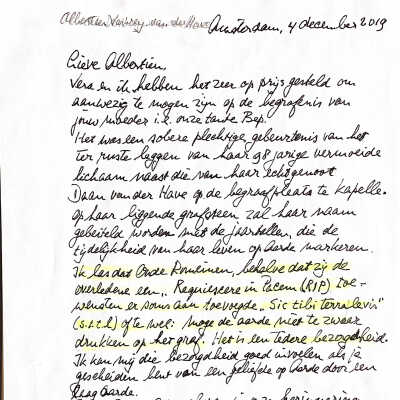 Albertien Verweij-van der Have Amsterdam, 4 december 2019
Lieve Albertien,
Vera en ik hebben het zeer op prijs gesteld om
aanwezig te mogen zijn op de begrafenis van
jouw moeder i.c. onze tante Bep.
Het was een sobere plechtige gebeurtenis van het
ter ruste leggen van haar 98 jarige vermoeide
lichaam naast die van haar echtgenoot
Daan van der Have op de begraafplaats te Kapelle.
Op haar liggende grafsteen zal haar naam
gebeiteld worden met de jaartallen, die de
tijdelijkheid van haar leven op aarde markeren.
Ik las dat Oude Romeinen, behalve dat zij de
overledene een „Requiescere in Pacem (RIP) toe-
wensten er soms aan toevoegde „Sic tibi terra levis"
(s.t.t.l) ofte wel: moge de aarde niet te zwaar
drukken op het graf. Het is een tedere bezorgdheid.
Ik kan mij die bezorgdheid goed invoelen als je
gescheiden bent van een geliefde op aarde door een
laag aarde.